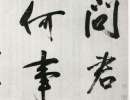 問君
何事